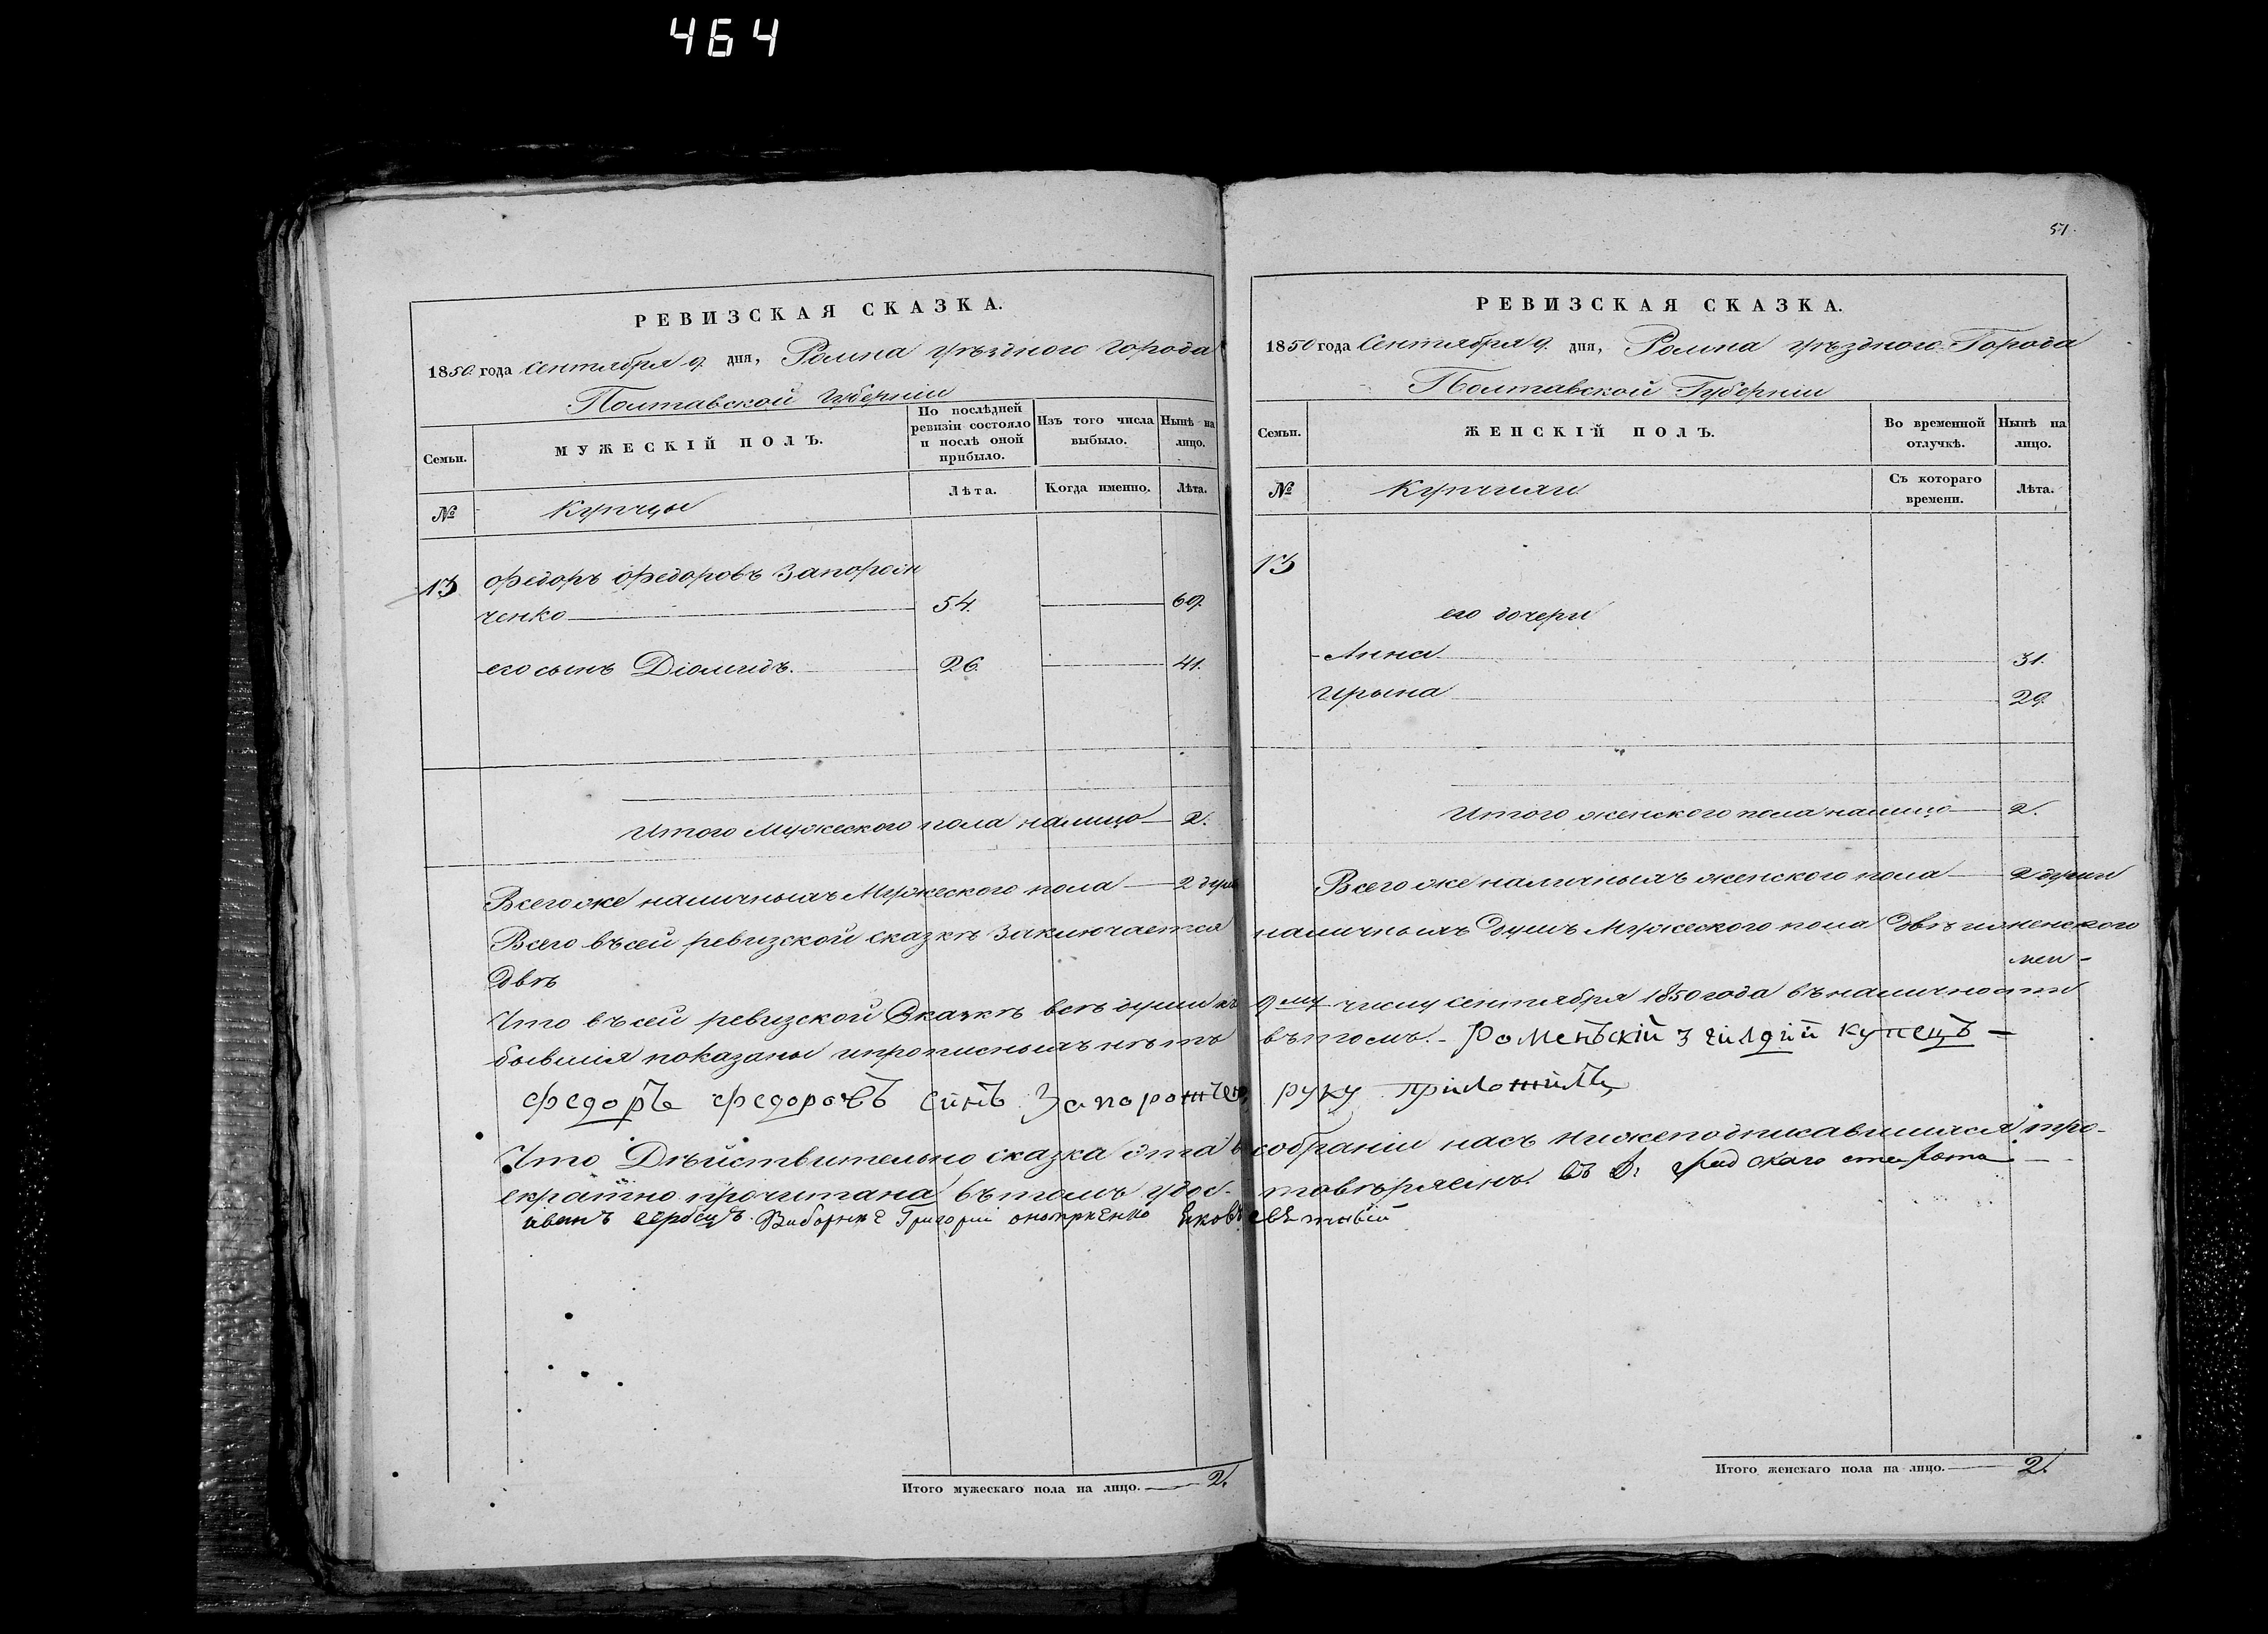 464
51.
РЕВИЗСКАЯ СКАЗКА.
1850 года Сентября 9. дня, Ромна уѣзднаго города
Полтавской губерніи
Семьи.
МУЖЕСКІЙ ПОЛЪ.
По послѣдней ревизіи состояло и послѣ оной прибыло.
Изъ того числа выбыло.
Нынѣ на лицо.
№
Купцы
Лѣта.
Когда именно.
Лѣта.
13 Федоръ Федоровъ Запорож
ченко 54. 69.
его сынъ Діомидъ. 26. 41.
Итого Мужеского пола налицо 2.
Всего же наличныхъ Мужеского пола 2 душ
РЕВИЗСКАЯ СКАЗКА.
1850 года Сентября 9. дня, Ромна уѣзднаго Города
Полтавской Губерніи
Семьи.
ЖЕНСКІЙ ПОЛЪ.
Во временной отлучкѣ.
Нынѣ на лицо.
№
Купчихи
Съ котораго времени.
Лѣта.
13
его дочери
Анна 31.
Ирына 29.
Итого женского пола налицо 2.
Всего же наличныхъ женского пола 2 души
Всего въ сей ревизской сказкѣ заключается наличныхъ душъ Мужеского пола двѣ и женского
двѣ
Что въ сей ревизской Сказкѣ всѣ души къ 9му числу сентября 1850 года въ наличности
бывшія показаны и прописныхъ нѣтъ въ томъ. - Роменъскій 3 гилдій купецъ -
федоръ федоровъ синъ Запорожчен, руку приложилъ
Что Дѣйствительно сказка эта в собраніи насъ нижеподписавшихся тро-
екратно прочитана въ томъ удос- товѣряемъ. Градскаго старота
иванъ сербецъ. Виборние Григорій Яковъ
Итого мужескаго пола на лицо. 2.
Итого женскаго пола на лицо. 2.